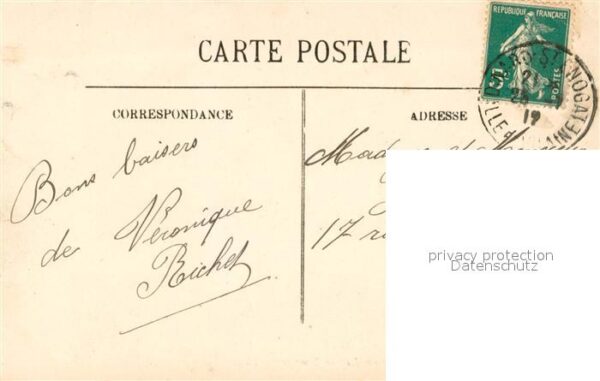 REPUBLIQUE FRANÇAISE
5c
POSTES
CARTE POSTALE
CORRESPONDANCE
ADRESSE
Bons baisers
de Véronique
Richet
17
privacy protection
Datenschutz